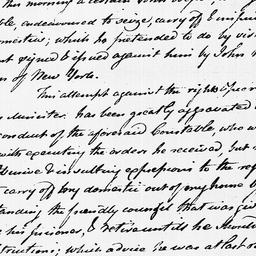 This morning a certain John
ble endeavoured to seize, carry off & impri
omestic; which he pretended to do by vir
t signed & issued against him by John
n of New York.
This attempt against the rights &
Minister, has been greatly aggravated
conduct of the aforesaid Constable who w
with executing the orders he received, but
busive & insulting expressions to the rep
carry off my domestic out of my house b
tanding the friendly counsel that was giv
his prisoner, & retire until he should
structions; which advice he was at last